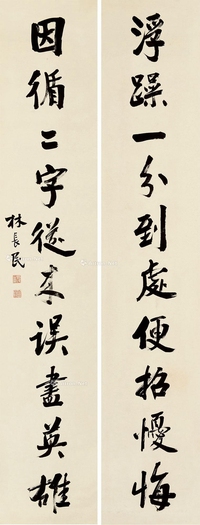 浮躁一分到處便招憂悔
因循二字從來误盡英雄
林長民